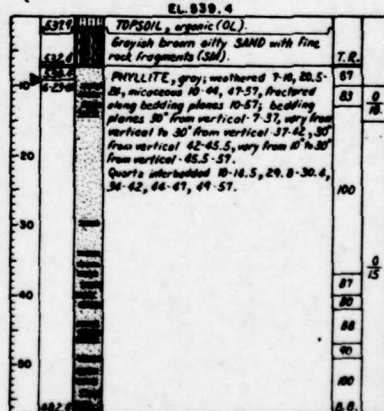 EL. 539.4
537.9 TOPSOIL, organic (OL).
Grayish brown silty SAND with fine
rock fragments (SM).
T.R.
PHYLLITE, gray; weathered 7-18, 20.5-
micaceous 10-44, 47-57, fractured
along bedding planes 10-57; bedding
planes 30° from vertical 7-37, vary from
vertical to 30° from vertical 37-42, 30°
from vertical 42-45.5, vary from 10° to 30°
from vertical 45.5-57.
Quartz interbedded 10-14.5, 29.8-30.4,
34-42, 44-47, 49-57.
67
83
0
10
100
20
30
0
15
40
87
80
88
50
90
100